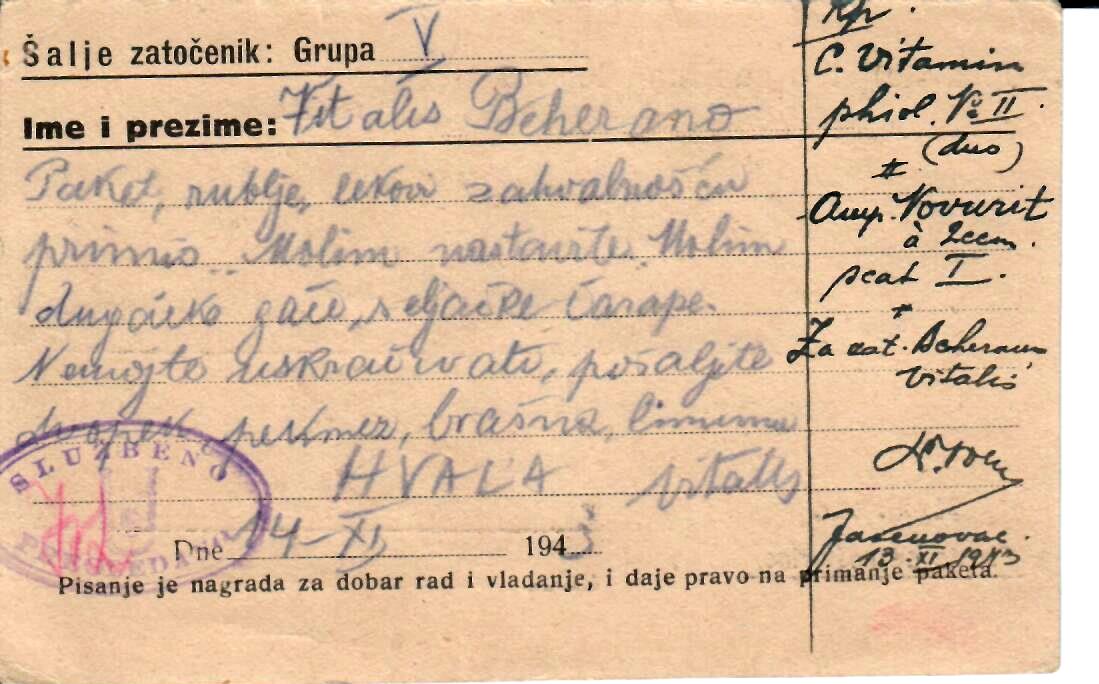 Šalje zatočenik: Grupa V
Ime i prezime: Vitalis Beherano
Paket, rublje, lekovi zahvalnošću
primio.. Molim nastavite. Molim
dugačke gaće, seljačke čarape.
Nemojte uskraćivati, pošaljite
pekmez, brašna, limuna
HVALA Vitalis
SLUŽBENO
Dne 14-XI 1943
Pisanje je nagrada za dobar rad i vladanje, i daje pravo na primanje paketa.
Rp.
C. Vitamin
phiol. No II.
(duo)
#
Amp. Novurit
à 2ccm.
scat I.
Za zat. Beherano
Vitalis
Jasenovac.
13. XI 1943